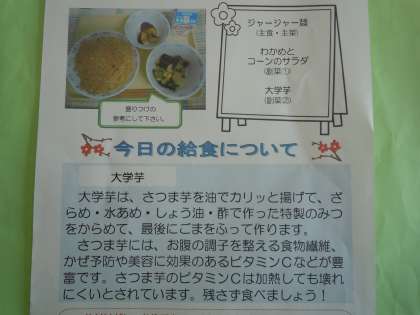 ジャージャー麺
(主食・主菜)
わかめと
コーンのサラダ
(副菜①)
大学芋
(副菜②)
盛りつけの
参考にして下さい。
今日の給食について
大学芋
大学芋は、さつま芋を油でカリッと揚げて、ざ
らめ・水あめ・しょう油・酢で作った特製のみつ
をからめて、最後にごまをふって作ります。
さつま芋には、お腹の調子を整える食物繊維、
かぜ予防や美容に効果のあるビタミンCなどが豊
富です。さつま芋のビタミンCは加熱しても壊れ
にくいとされています。残さず食べましょう！